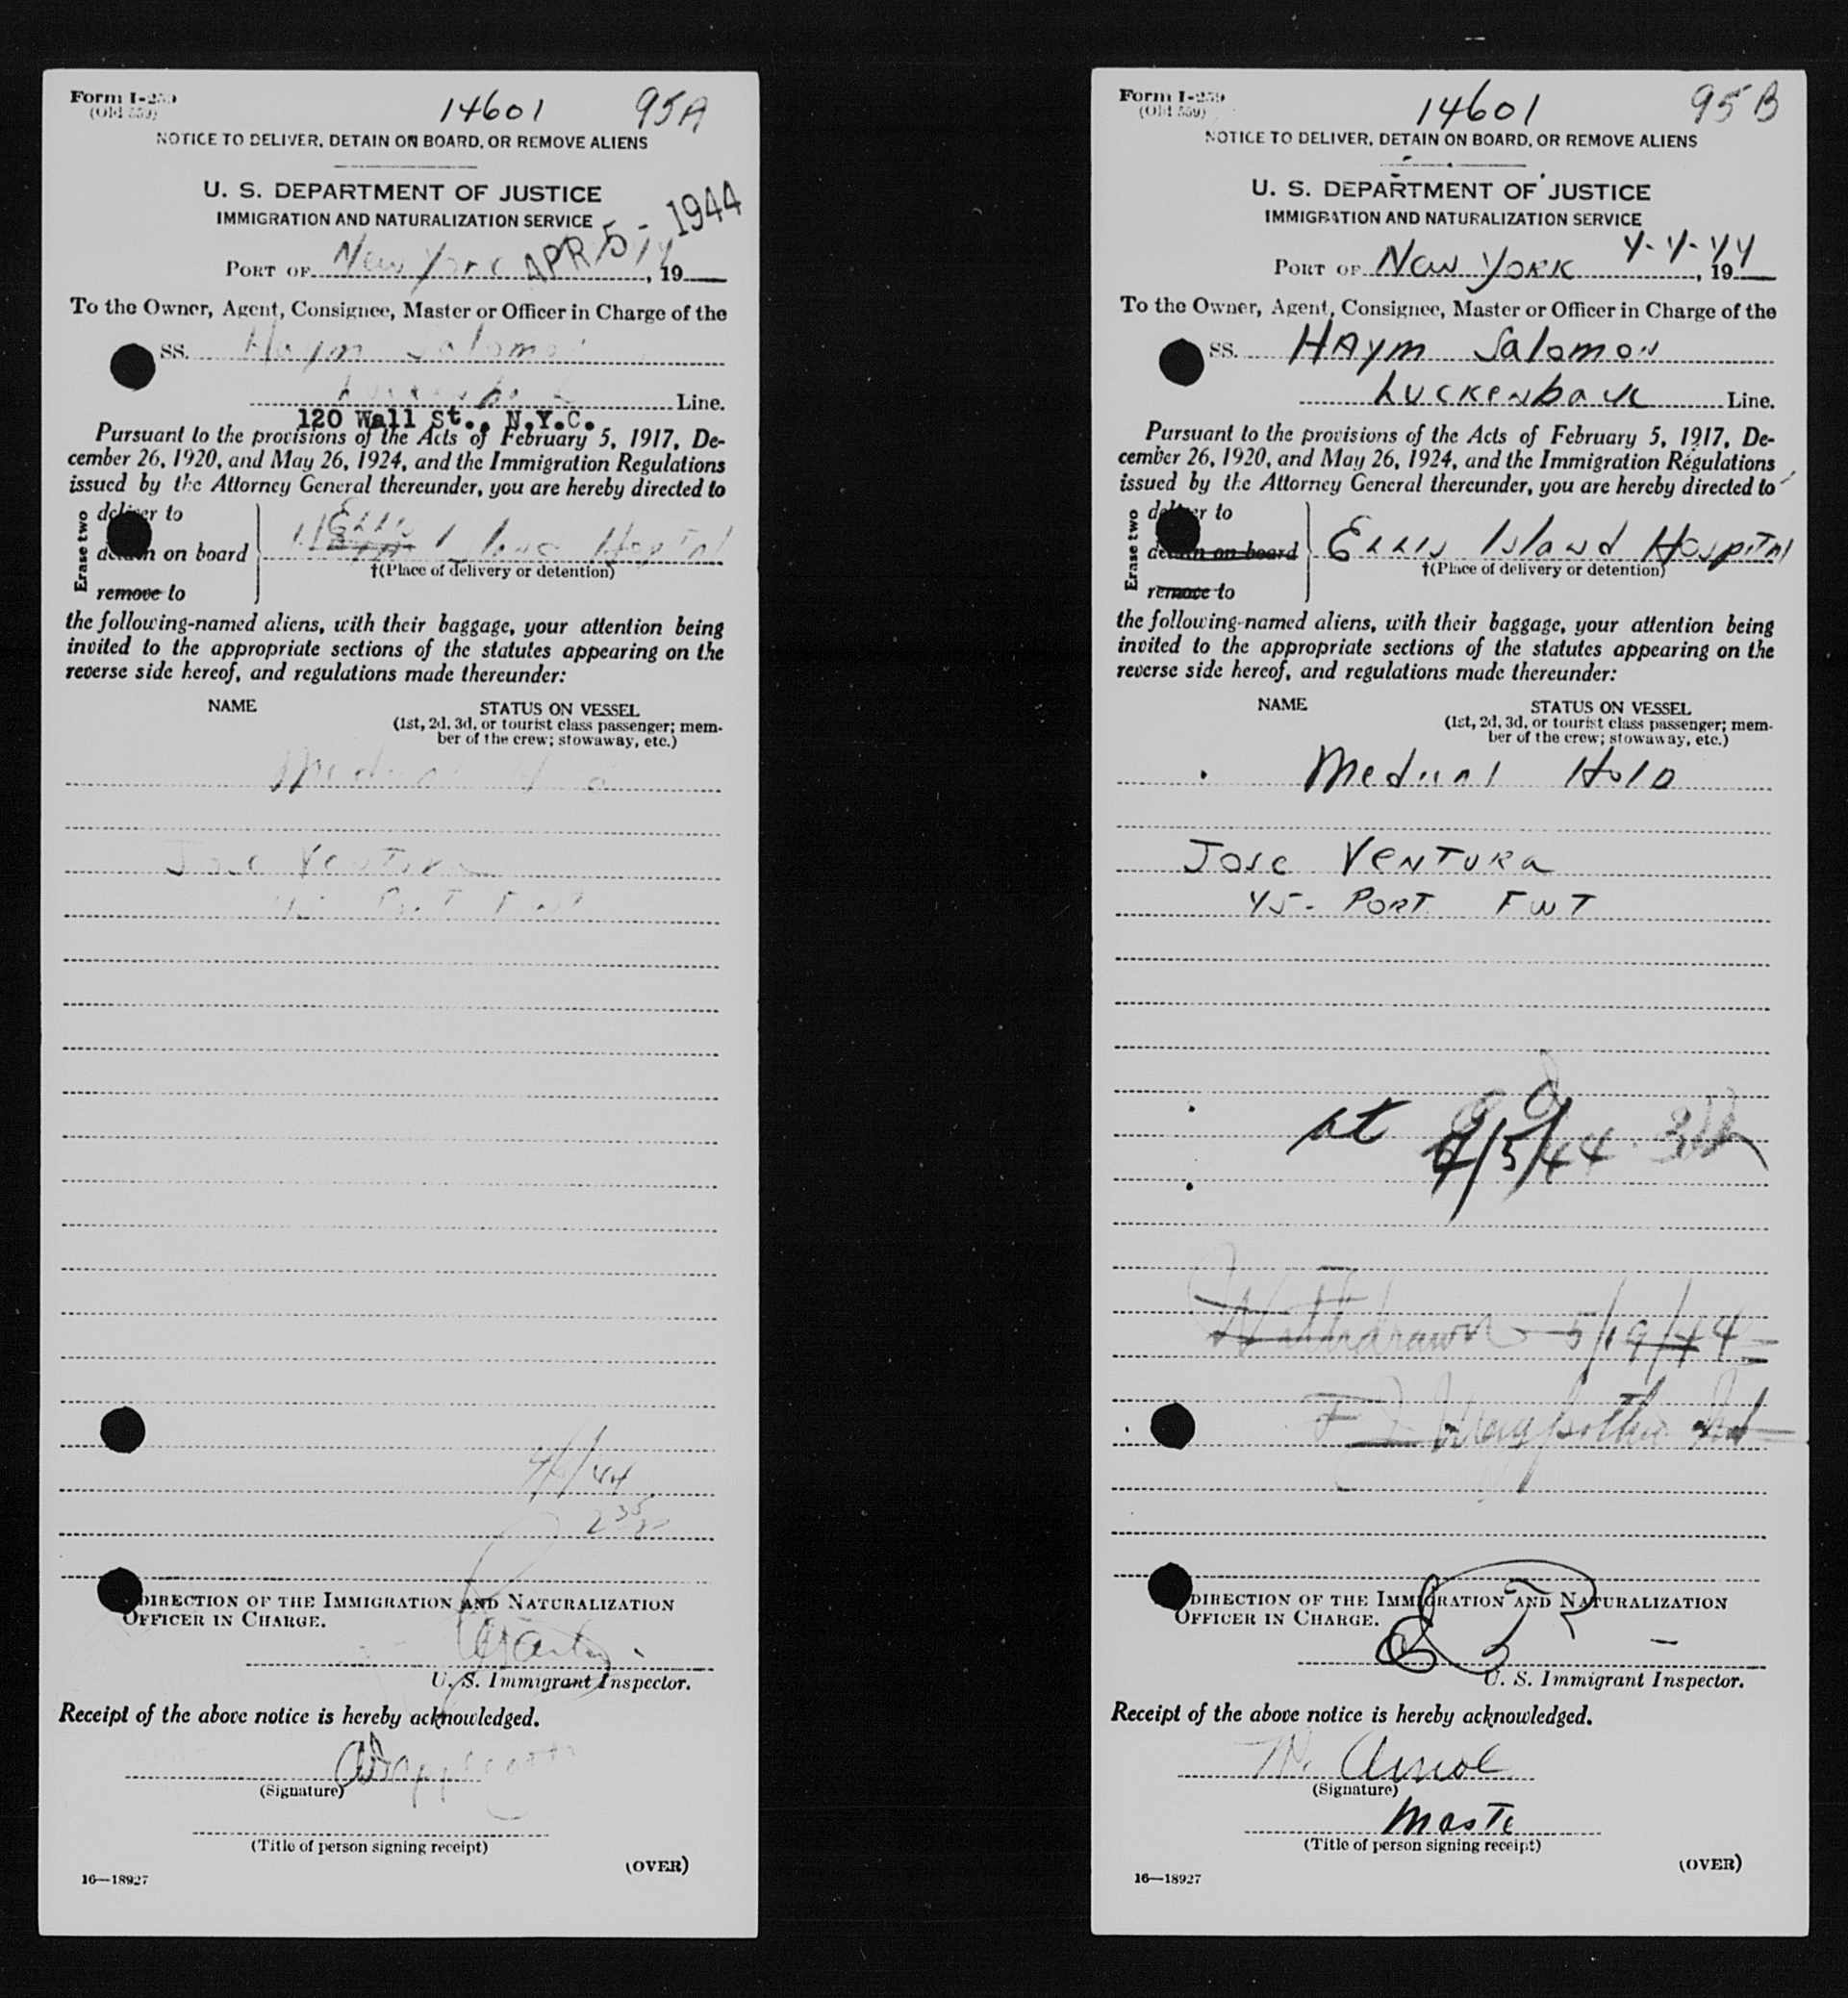 Form I-259
(Old 559)
14601
95A
NOTICE TO DELIVER, DETAIN ON BOARD, OR REMOVE ALIENS
U. S. DEPARTMENT OF JUSTICE
IMMIGRATION AND NATURALIZATION SERVICE
APR 5 - 1944
PORT OF New York , 19
To the Owner, Agent, Consignee, Master or Officer in Charge of the
SS. Haym Salomon
Line.
120 Wall St., N.Y.C.
Pursuant to the provisions of the Acts of February 5, 1917, De-
cember 26, 1920, and May 26, 1924, and the Immigration Regulations
issued by the Attorney General thereunder, you are hereby directed to
Erase two
deliver to
detain on board
remove to
Ellis Island Hospital
†(Place of delivery or detention)
the following-named aliens, with their baggage, your attention being
invited to the appropriate sections of the statutes appearing on the
reverse side hereof, and regulations made thereunder:
NAME
STATUS ON VESSEL
(1st, 2d, 3d, or tourist class passenger; mem-
ber of the crew; stowaway, etc.)
Medical Hold
Jose Ventura
45 - Port FWT
235
DIRECTION OF THE IMMIGRATION AND NATURALIZATION
OFFICER IN CHARGE.
U. S. Immigrant Inspector.
Receipt of the above notice is hereby acknowledged.
(Signature)
(Title of person signing receipt)
(OVER)
16—18927
Form I-259
(Old 559)
14601
95B
NOTICE TO DELIVER, DETAIN ON BOARD, OR REMOVE ALIENS
U. S. DEPARTMENT OF JUSTICE
IMMIGRATION AND NATURALIZATION SERVICE
PORT OF New York 4-4-44, 19
To the Owner, Agent, Consignee, Master or Officer in Charge of the
SS. Haym Salomon
Luckenback Line.
Pursuant to the provisions of the Acts of February 5, 1917, De-
cember 26, 1920, and May 26, 1924, and the Immigration Regulations
issued by the Attorney General thereunder, you are hereby directed to
Erase two
deliver to
detain on board
remove to
Ellis Island Hospital
†(Place of delivery or detention)
the following-named aliens, with their baggage, your attention being
invited to the appropriate sections of the statutes appearing on the
reverse side hereof, and regulations made thereunder:
NAME
STATUS ON VESSEL
(1st, 2d, 3d, or tourist class passenger; mem-
ber of the crew; stowaway, etc.)
Medical Hold
Jose Ventura
45 - Port FWT
4/5/44
Withdrawn - 5/19/44
DIRECTION OF THE IMMIGRATION AND NATURALIZATION
OFFICER IN CHARGE.
U. S. Immigrant Inspector.
Receipt of the above notice is hereby acknowledged.
(Signature)
Maste
(Title of person signing receipt)
(OVER)
16—18927